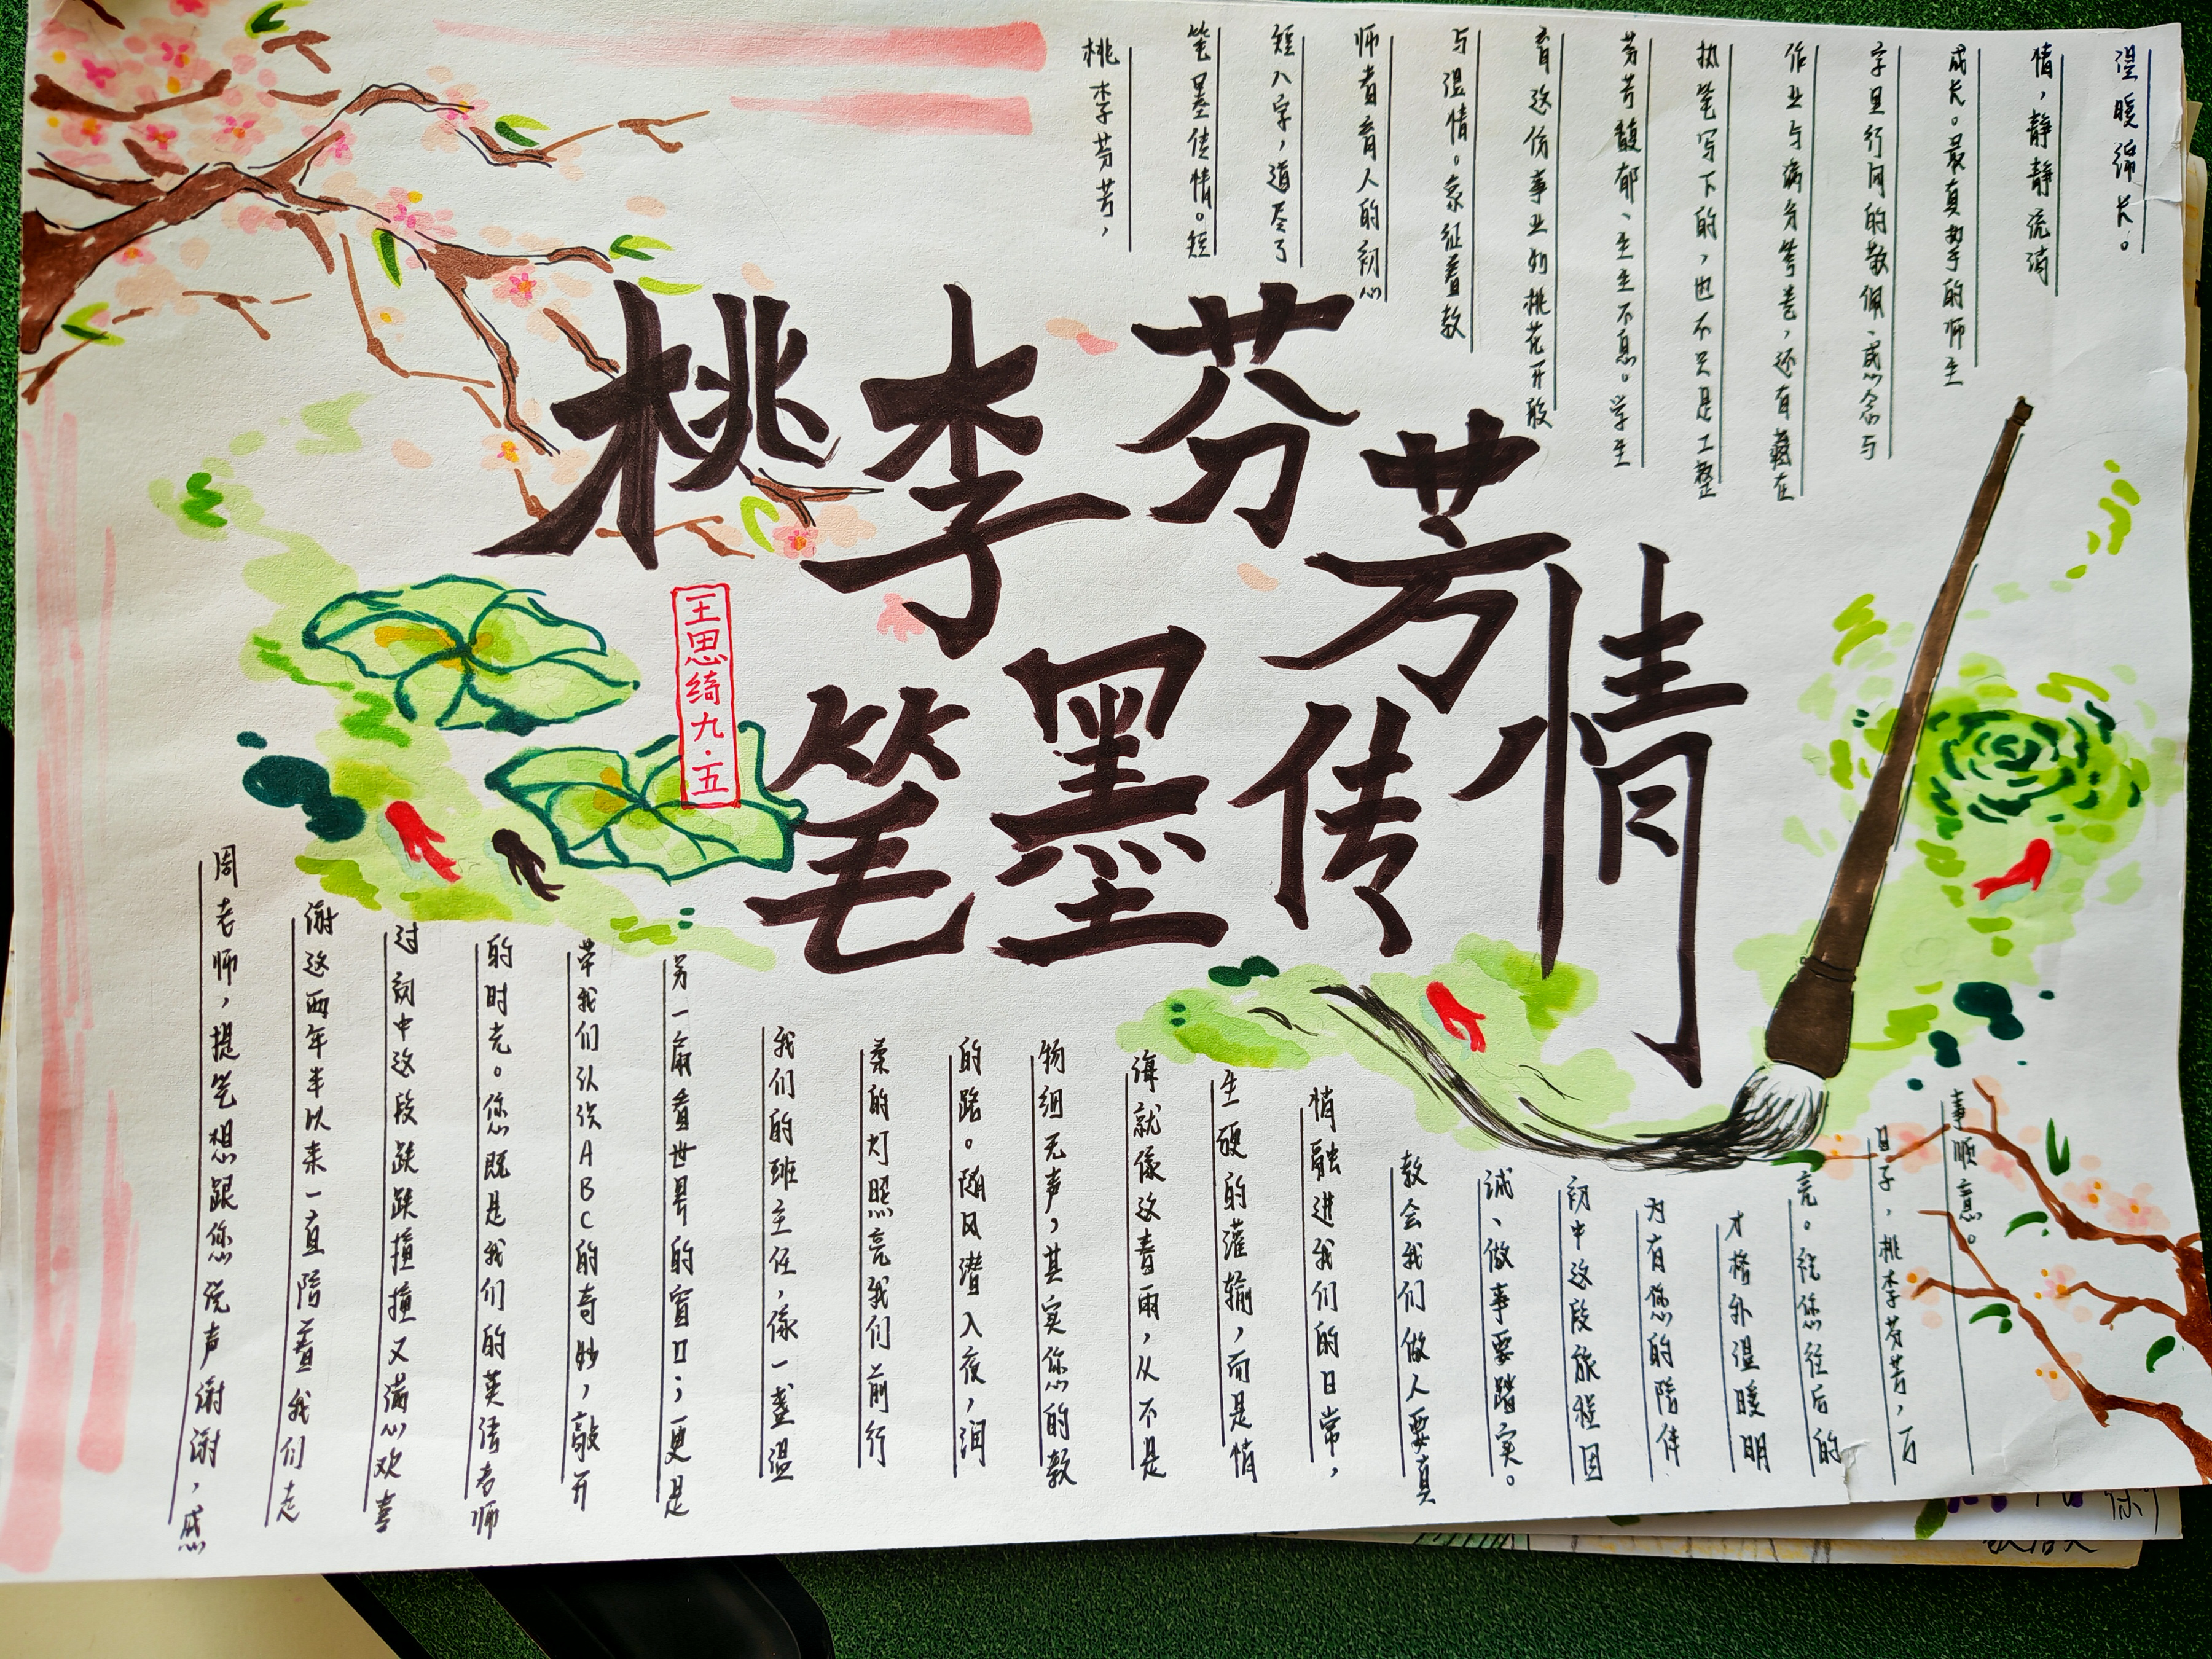 桃李芬芳
笔墨传情
王思绮九·五
桃李芬芳，
笔墨传情。短
短八字，道尽了
师者育人的初心
与温情。象征着教
育这份事业如桃花开般
芬芳馥郁、生生不息。学生
执笔写下的，也不只是工整
作业与满分答卷，还有藏在
字里行间的敬佩、感念与
成长。最真挚的师生
情，静静流淌
温暖绵长。
周老师，提笔想跟您说声谢谢，感
谢这两年半以来一直陪着我们走
过初中这段跌跌撞撞又满心欢喜
的时光。您既是我们的英语老师
带我们认识ABC的奇妙，敲开
另一扇看世界的窗口；更是
我们的班主任，像一盏温
柔的灯照亮我们前行
的路。随风潜入夜，润
物细无声，其实您的教
诲就像这春雨，从不是
生硬的灌输，而是悄
悄融进我们的日常，
教会我们做人要真
诚、做事要踏实。
初中这段旅程因
为有您的陪伴
才格外温暖明
亮。祝您往后的
日子，桃李芬芳，万
事顺意。